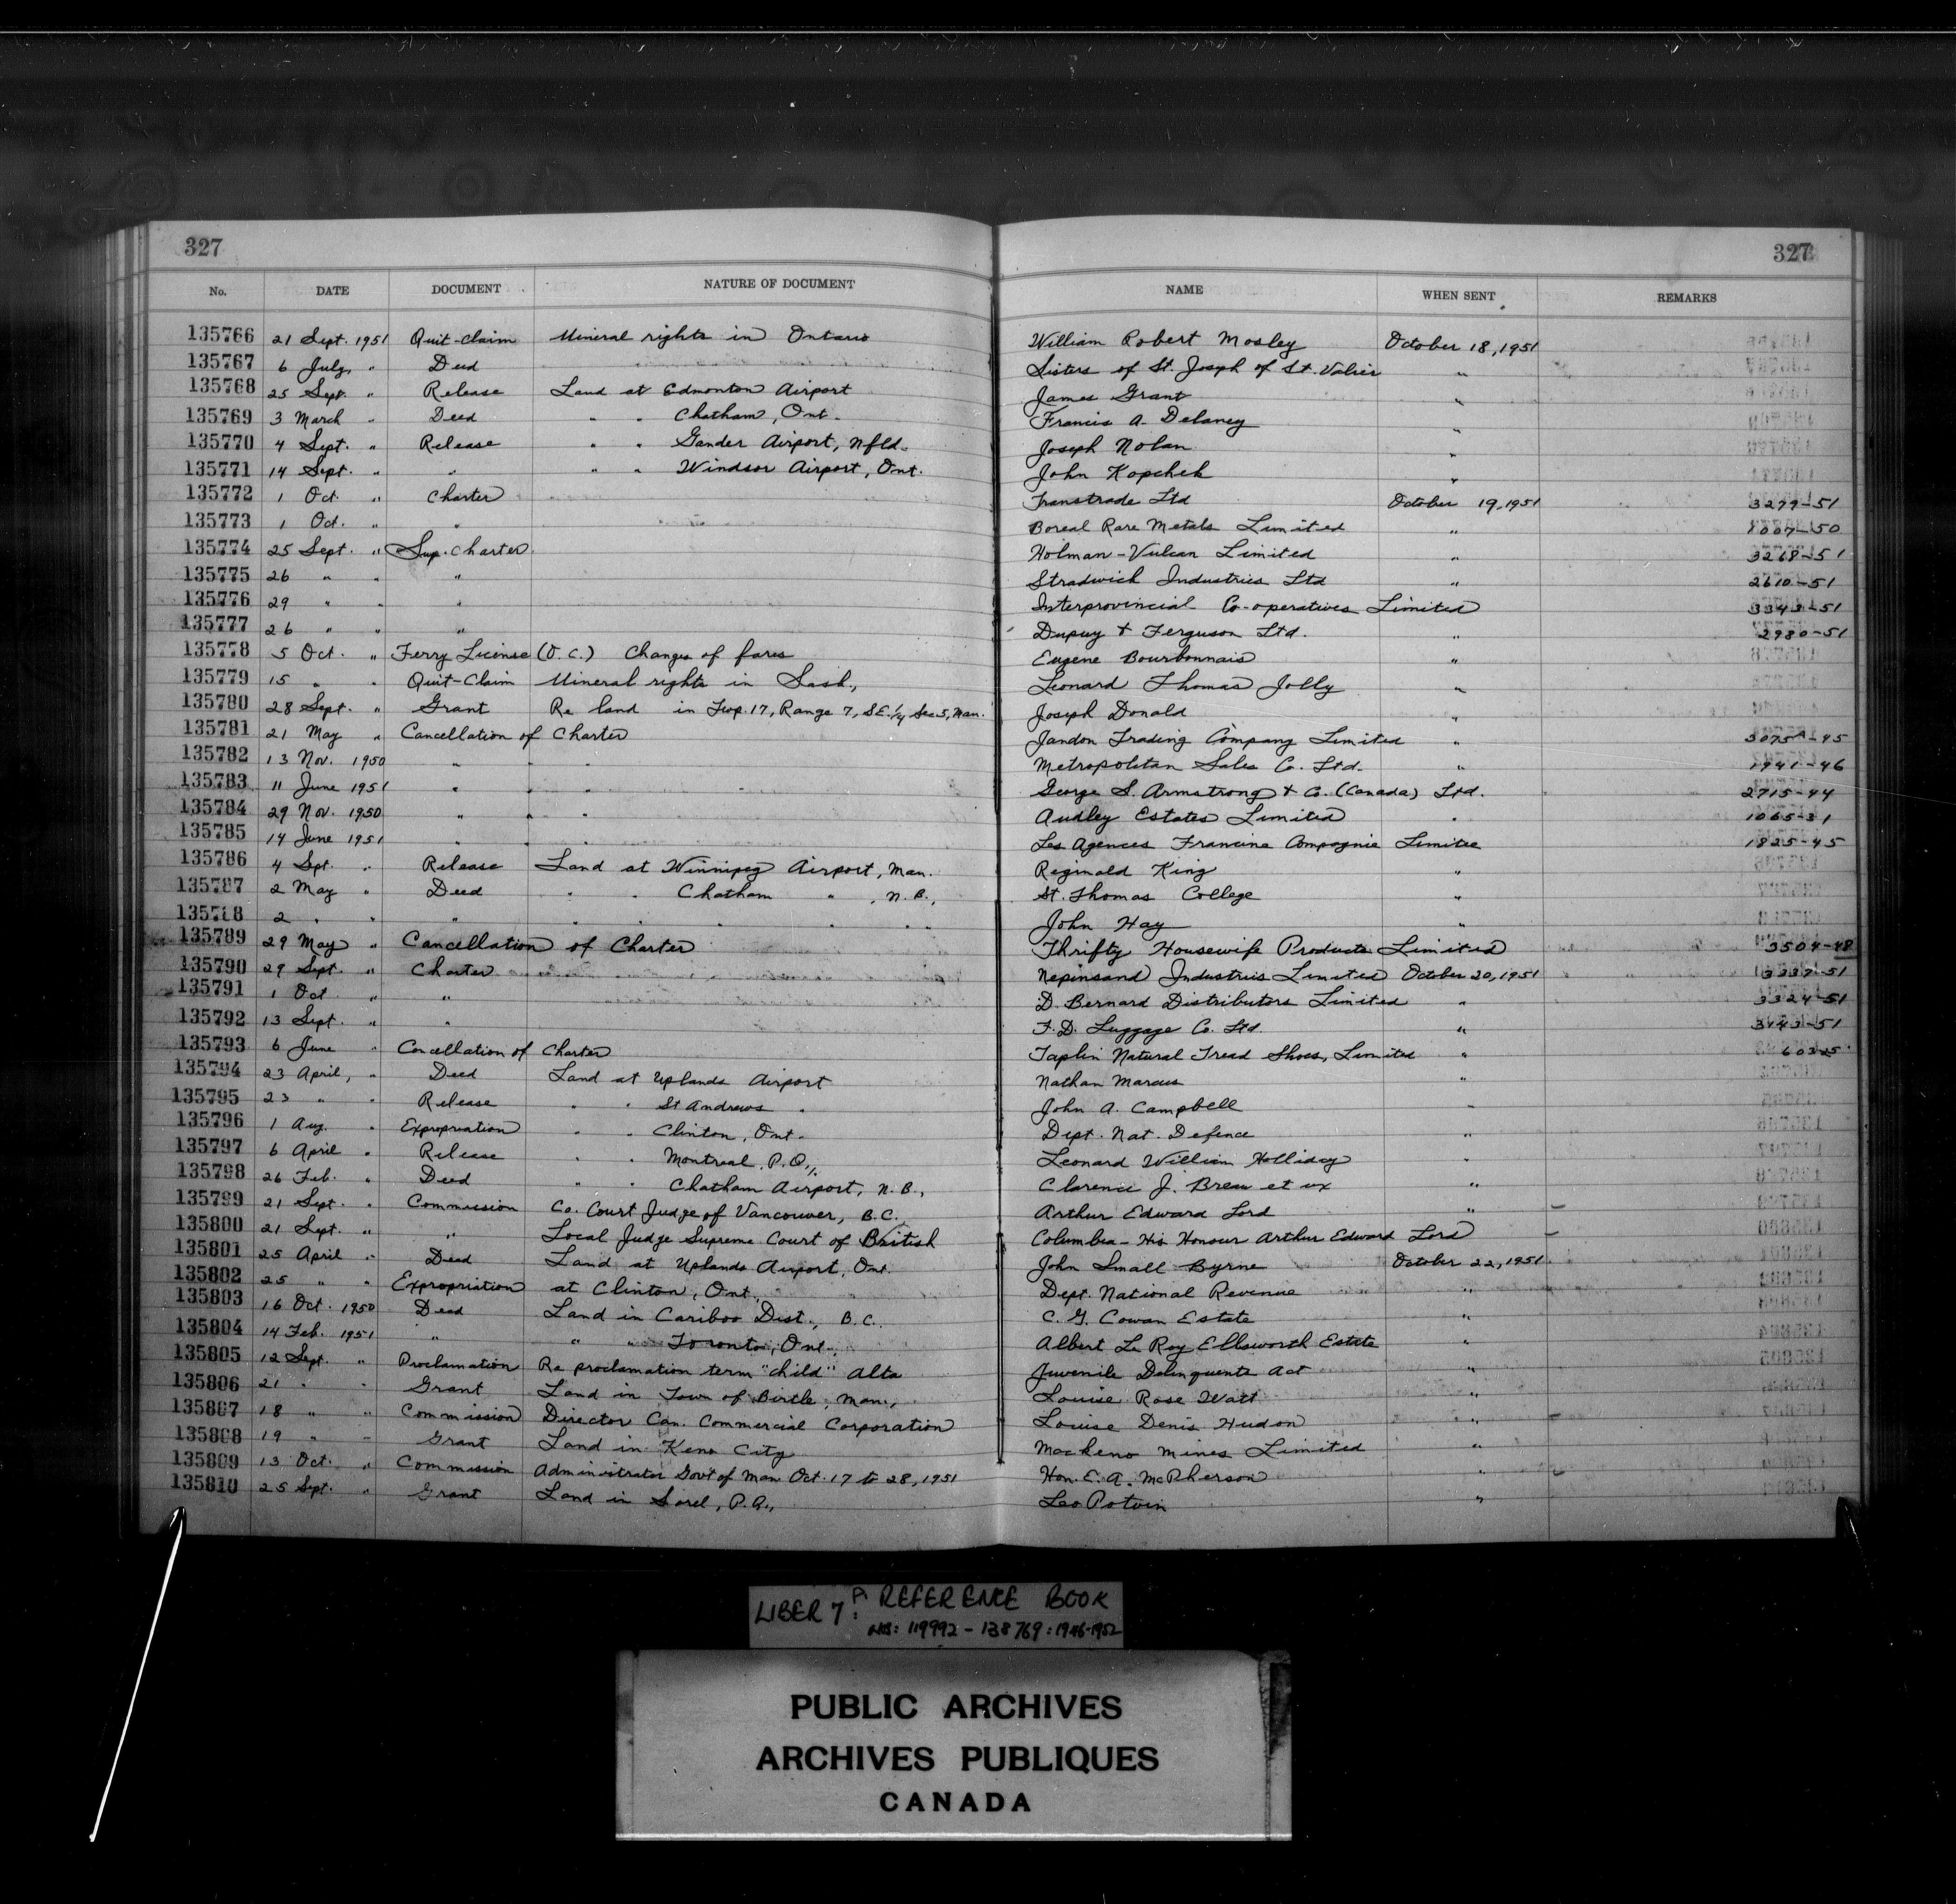 327 327
No. DATE DOCUMENT NATURE OF DOCUMENT NAME WHEN SENT REMARKS
135766 21 Sept. 1951 Quit-claim Mineral rights in Ontario William Robert Mosley October 18, 1951
135767 6 July, " Deed Sisters of St. Joseph of St. Valier "
135768 25 Sept. " Release Land at Edmonton Airport James Grant "
135769 3 March " Deed " " Chatham, Ont. Francis A. Delaney "
135770 4 Sept. " Release " " Gander Airport, Nfld. Joseph Nolan "
135771 14 Sept. " " " " Windsor Airport, Ont. John Kopchek "
135772 1 Oct. " Charter Transtrade Ltd October 19, 1951 3279-51
135773 1 Oct. " " Boreal Rare Metals Limited " 1007-50
135774 25 Sept. " Sup. Charter Holman-Vulcan Limited " 3268-51
135775 26 " " " Stradwick Industries Ltd " 2610-51
135776 29 " " " Interprovincial Co-operatives Limited 3343-51
135777 26 " " " Dupuy & Ferguson Ltd. " 2980-51
135778 5 Oct. " Ferry License (O.C.) Changes of fares Eugene Bourbonnais "
135779 15 " " Quit-Claim Mineral rights in Sask., Leonard Thomas Jolly "
135780 28 Sept. " Grant Re land in Twp. 17, Range 7, S.E. 1/4 Sec 5, Man. Joseph Donald "
135781 21 May " Cancellation of Charter Jandon Trading Company Limited " 3075-45
135782 13 Nov. 1950 " " " Metropolitan Sales Co. Ltd. " 1941-46
135783 11 June 1951 " " " George S. Armstrong & Co. (Canada) Ltd. 2715-44
135784 29 Nov. 1950 " " " Audley Estates Limited " 1065-31
135785 14 June 1951 " " " Les Agences Francine Compagnie Limitee 1825-45
135786 4 Sept. " Release Land at Winnipeg Airport, Man. Reginald King "
135787 2 May " Deed " " Chatham " , N.B., St. Thomas College "
135788 2 " " " " " " " " John Hay "
135789 29 May " Cancellation of Charter Thrifty Housewife Products Limited 3504-48
135790 29 Sept. " Charter Nepinsand Industries Limited October 20, 1951 3337-51
135791 1 Oct " " D. Bernard Distributors Limited " 3324-51
135792 13 Sept. " " F.D. Luggage Co. Ltd. " 3143-51
135793 6 June " Cancellation of Charter Taplin Natural Tread Shoes, Limited "
135794 23 April, " Deed Land at Uplands Airport Nathan Marcus "
135795 23 " " Release " " St Andrews " John A. Campbell "
135796 1 Aug. " Expropriation " " Clinton, Ont. Dept. Nat. Defence "
135797 6 April " Release " " Montreal, P.Q., Leonard William Holliday "
135798 26 Feb. " Deed " " Chatham Airport, N.B., Clarence J. Breau et ux "
135799 21 Sept. " Commission Co. Court Judge of Vancouver, B.C. Arthur Edward Lord "
135800 21 Sept. " " Local Judge Supreme Court of British Columbia - His Honour Arthur Edward Lord
135801 25 April " Deed Land at Uplands Airport, Ont. John Small Byrne October 22, 1951
135802 25 " " Expropriation at Clinton, Ont. Dept. National Revenue "
135803 16 Oct. 1950 Deed Land in Cariboo Dist., B.C. C.G. Cowan Estate "
135804 14 Feb. 1951 " " " Toronto, Ont. Albert Le Roy Ellsworth Estate "
135805 12 Sept. " Proclamation Re proclamation term "child" Alta Juvenile Delinquents Act "
135806 21 " " Grant Land in Town of Birtle, Man., Louise Rose Watt "
135807 18 " " Commission Director Can. Commercial Corporation Louise Denis Hudon "
135808 19 " " Grant Land in Keno City Mackeno Mines Limited "
135809 13 Oct. " Commission Administrator Govt of Man Oct. 17 to 28, 1951 Hon. E.A. McPherson "
135810 25 Sept. " Grant Land in Sorel, P.Q., Leo Potvin "
LIBER 7A: REFERENCE BOOK
NOS: 119992-138769: 1946-1952
PUBLIC ARCHIVES
ARCHIVES PUBLIQUES
CANADA